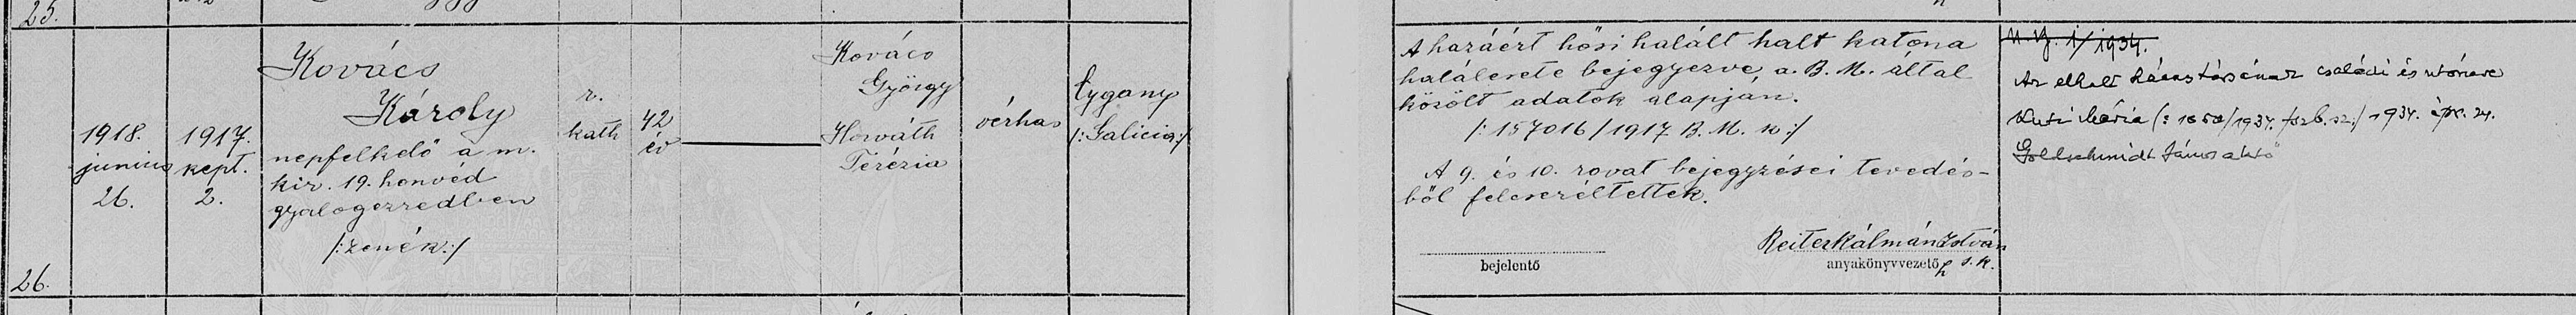 25.
26.
1918.
junius
26.
1917.
sept.
2.
Kovács
Károly
nepfelkelő a m.
kir. 19. honvéd
gyalogezredben
/:zenész:/
r.
kath
42
év
Kovács
György
Horváth
Terézia
vérhas
Cygany
/:Galicia:/
A hazáért hősi halált halt katona
halálesete bejegyezve, a. B. M. által
közölt adatok alapján.
/:157016/1917 B. M. n:/
A 9. és 10. rovat bejegyzései tevedés-
ből felcseréltettek.
bejelentő
Reiter Kálmán István
anyakönyvvezető h s.k.
U. Gy. 1/1934.
Az elhalt házastársának családi és utóneve
Mária (: 1934. 1934. ápr. 24.
Goldschmidt János